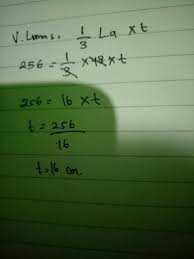 V. Limas = 1/3 La x t
256 = 1/3 x 48 x t
256 = 16 x t
t = 256/16
t = 16 cm.